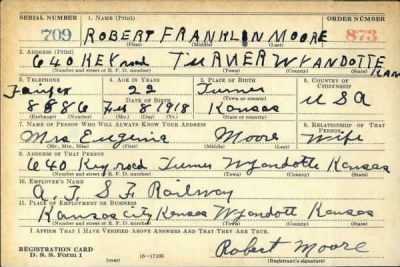 SERIAL NUMBER 1. NAME (Print) ORDER NUMBER
709 ROBERT FRANKLIN MOORE 873
(First) (Middle) (Last)
2. ADDRESS (Print)
640 KEY road TURNER WYANDOTTE KAN
(Number and street or R. F. D. number) (Town) (County) (State)
3. TELEPHONE 4. AGE IN YEARS 5. PLACE OF BIRTH 6. COUNTRY OF CITIZENSHIP
Fairfax 22 Turner
DATE OF BIRTH (Town or county) U S A
8886 Feb 8 1918 Kansas
(Exchange) (Number) (Mo.) (Day) (Yr.) (State or country)
7. NAME OF PERSON WHO WILL ALWAYS KNOW YOUR ADDRESS 8. RELATIONSHIP OF THAT PERSON
Mrs Eugenia Moore Wife
(Mr., Mrs., Miss) (First) (Middle) (Last)
9. ADDRESS OF THAT PERSON
640 Key road Turner Wyandotte Kansas
(Number and street or R. F. D. number) (Town) (County) (State)
10. EMPLOYER'S NAME
A. T. S. F. Railway
11. PLACE OF EMPLOYMENT OR BUSINESS
Kansas city Kansas Wyandott Kansas
(Number and street or R. F. D. number) (Town) (County) (State)
I AFFIRM THAT I HAVE VERIFIED ABOVE ANSWERS AND THAT THEY ARE TRUE.
Robert Moore
REGISTRATION CARD
D. S. S. Form 1 (over) 16-17105 (Registrant's signature)